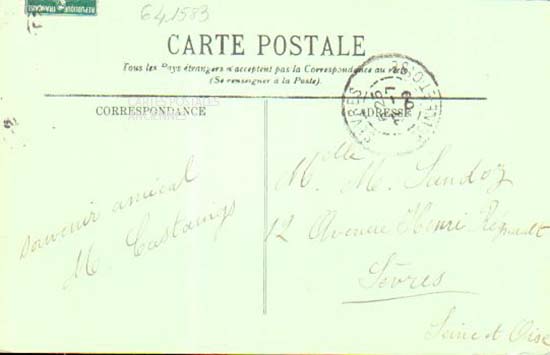 641583
REPUBLIQUE FRANÇAISE
CARTE POSTALE
Tous les Pays étrangers n'acceptent pas la Correspondance au verso
(Se renseigner à la Poste).
CARTES POSTALES
CORRESPONDANCE
ADRESSE
souvenir amical
M. Castaings
Melle M. Sandoz
12 Avenue Henri Regnault
Sèvres
Seine et Oise
SEVRES